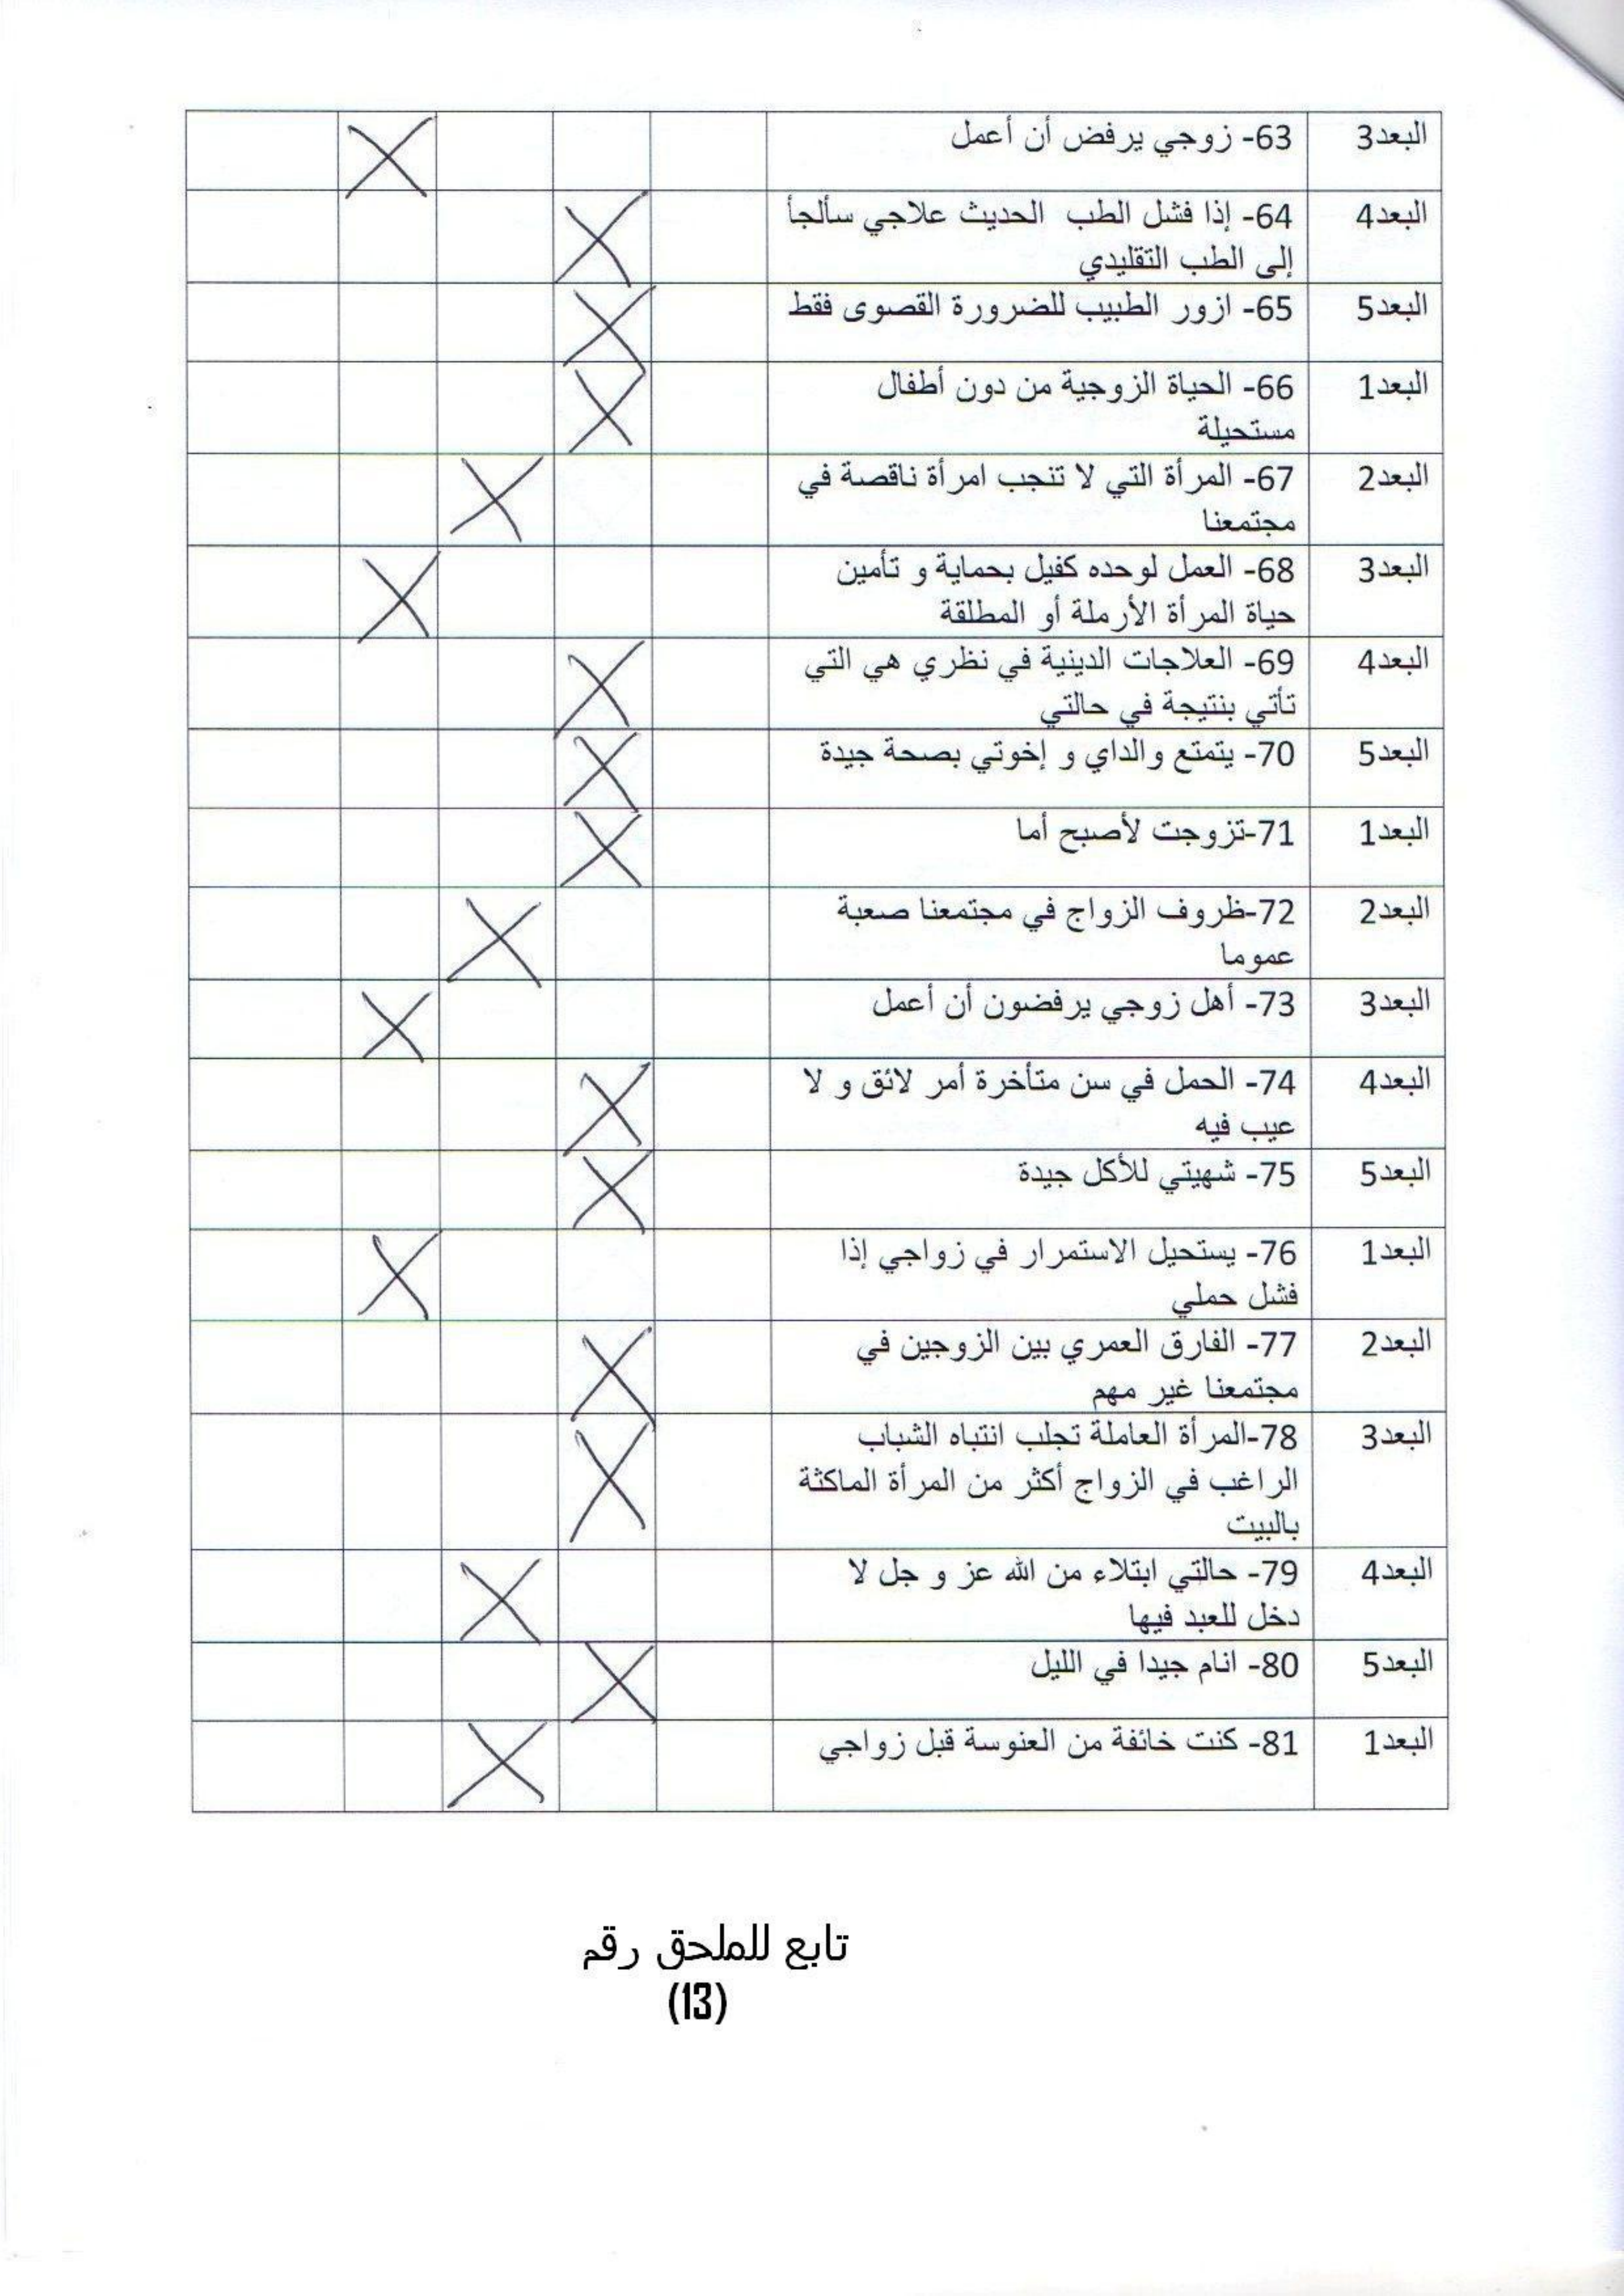 البعد3 63- زوجي يرفض أن أعمل X
البعد4 64- إذا فشل الطب الحديث علاجي سألجأ X
إلى الطب التقليدي
البعد5 65- ازور الطبيب للضرورة القصوى فقط X
البعد1 66- الحياة الزوجية من دون أطفال X
مستحيلة
البعد2 67- المرأة التي لا تنجب امرأة ناقصة في X
مجتمعنا
البعد3 68- العمل لوحده كفيل بحماية و تأمين X
حياة المرأة الأرملة أو المطلقة
البعد4 69- العلاجات الدينية في نظري هي التي X
تأتي بنتيجة في حالتي
البعد5 70- يتمتع والداي و إخوتي بصحة جيدة X
البعد1 71-تزوجت لأصبح أما X
البعد2 72-ظروف الزواج في مجتمعنا صعبة X
عموما
البعد3 73- أهل زوجي يرفضون أن أعمل X
البعد4 74- الحمل في سن متأخرة أمر لائق و لا X
عيب فيه
البعد5 75- شهيتي للأكل جيدة X
البعد1 76- يستحيل الاستمرار في زواجي إذا X
فشل حملي
البعد2 77- الفارق العمري بين الزوجين في X
مجتمعنا غير مهم
البعد3 78-المرأة العاملة تجلب انتباه الشباب X
الراغب في الزواج أكثر من المرأة الماكثة
بالبيت
البعد4 79- حالتي ابتلاء من الله عز و جل لا X
دخل للعبد فيها
البعد5 80- انام جيدا في الليل X
البعد1 81- كنت خائفة من العنوسة قبل زواجي X
تابع للملحق رقم
(13)